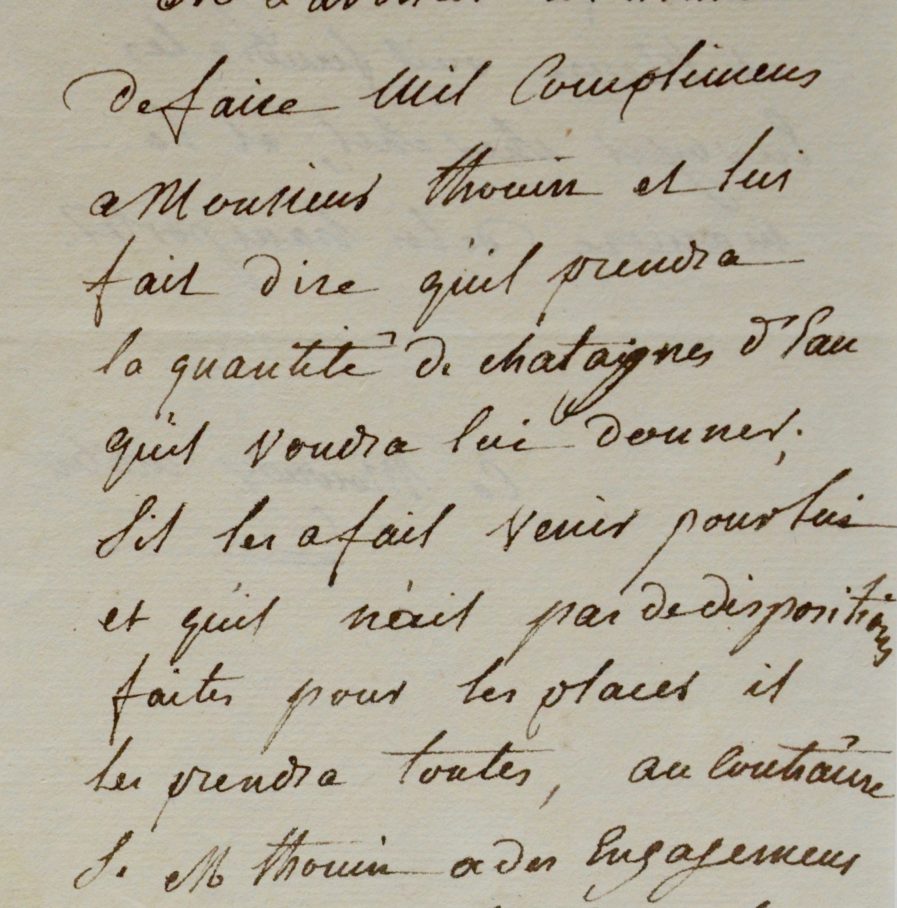 de faire Mil Complimens
a Monsieur thouin et lui
fait dire quil prendra
la quantité de chataignes d'Eau
quil voudra lui donner;
Sil les a fait venir pour lui
et quil n'ait pas de dispositions
faites pour les placer il
les prendra toutes, au Contraire
Si M thouin a des Engagemens